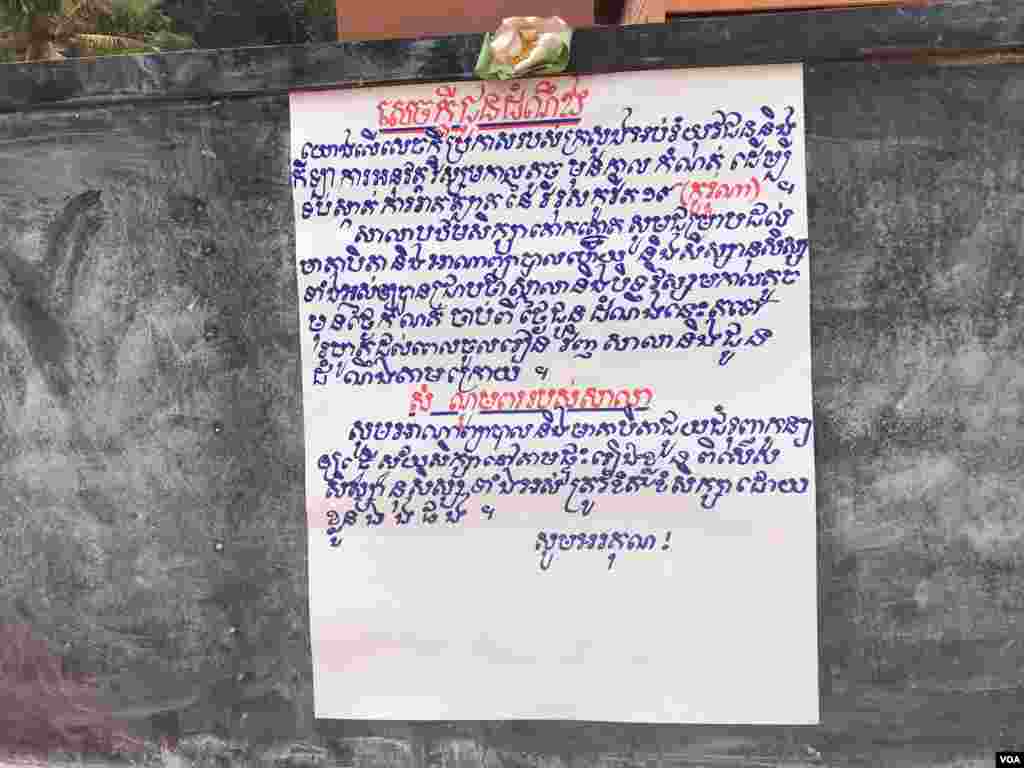 សេចក្តីជូនដំណឹង
យោងលើសេចក្តីប្រកាសរបស់ក្រសួងអប់រំយុវជននិង
កីឡា ការអនុវត្តវិស្សមកាលតូច មុនកាលកំណត់ ដើម្បី
ទប់ស្កាត់ការរាតត្បាតនៃវីរុសកូវីត ១៩ (កូរ៉ូណា) ។
សាលាបឋមសិក្សាគោកឃ្លោក សូមជម្រាបដល់
មាតាបិតានិងអាណាព្យាបាល និងសិស្សានុសិស្ស
ទាំងអស់ឲ្យបានជ្រាបថា សាលានិងបិទវិស្សមកាលតូច
មុនថ្ងៃកំណត់ ចាប់ពីថ្ងៃជូនដំណឹងនេះតទៅ
រហូតដល់ពេលចូលរៀនវិញ សាលានិងជូន
ដំណឹងតាមក្រោយ ។
សំណូមពររបស់សាលា
សូមអាណាព្យាបាលនិងមាតាបិតាជួយជំរុញកូន
ឲ្យរៀនសូត្រសិក្សានៅតាមផ្ទះរៀងៗខ្លួន ពិសេស
សិស្សានុសិស្សទាំងអស់ត្រូវខិតខំសិក្សាដោយ
ខ្លួនឯងផង ។
សូមអរគុណ !
VOA